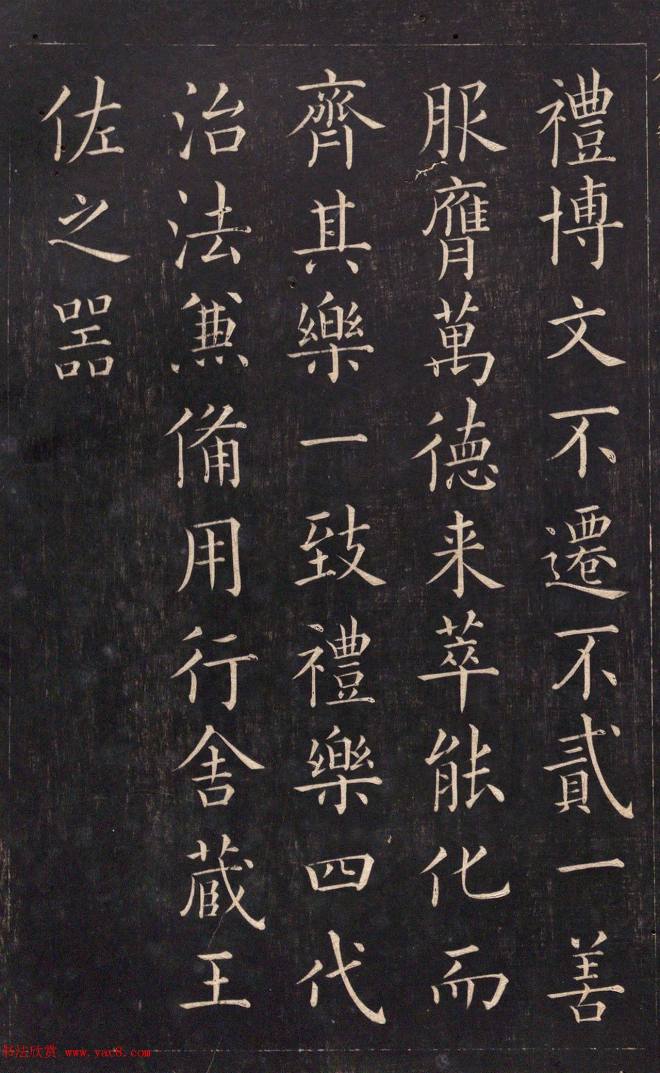 禮博文不遷不貳一善
服膺萬德来萃能化而
齊其樂一致禮樂四代
治法兼俻用行舍蔵王
佐之器
书法欣赏 www.yac8.com